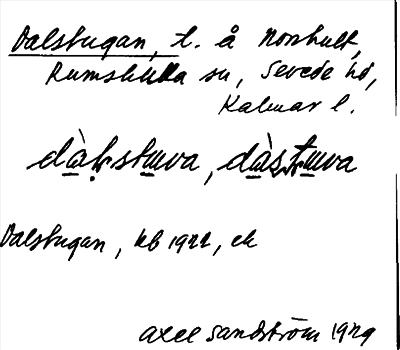 Dalstugan, t. å Norhult,
Rumskulla sn, Sevede hd,
Kalmar l.
dàlstuva, dàstuva
Dalstugan, kb 1922, ek
Axel Sandström 1929